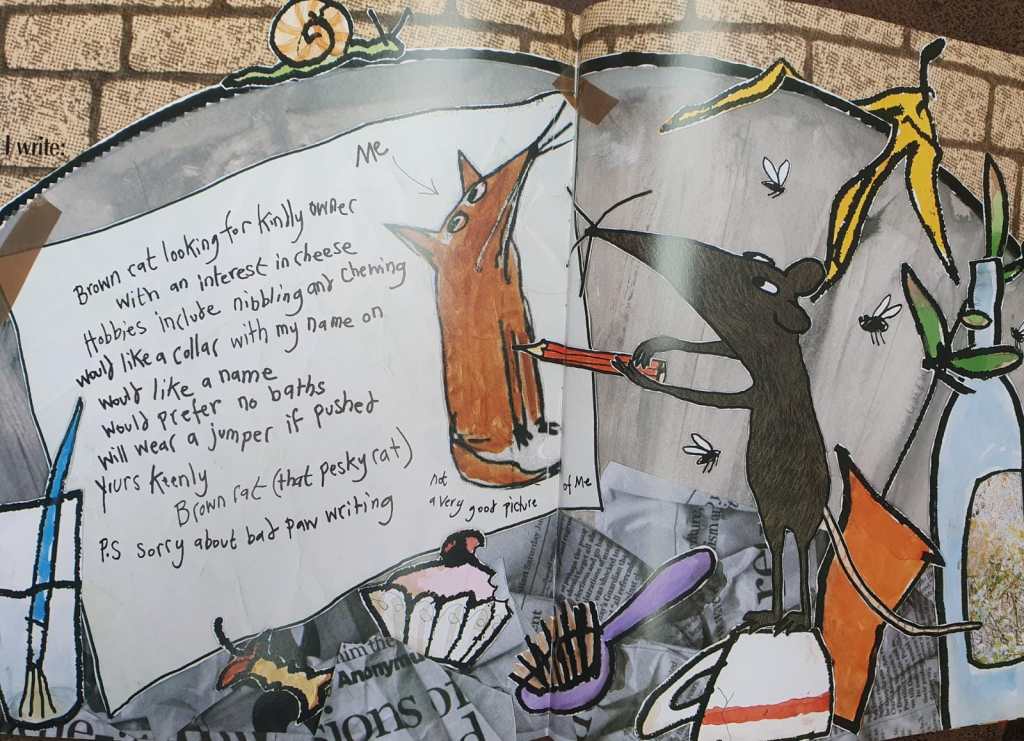 I write:
Me
Brown rat looking for kindly owner
with an interest in cheese
Hobbies include nibbling and chewing
would like a collar with my name on
would like a name
would prefer no baths
will wear a jumper if pushed
Yours Keenly
Brown rat (that pesky rat)
P.S sorry about bad paw writing
not of Me
a very good picture
aim the
Anonymu
sions of
d
re